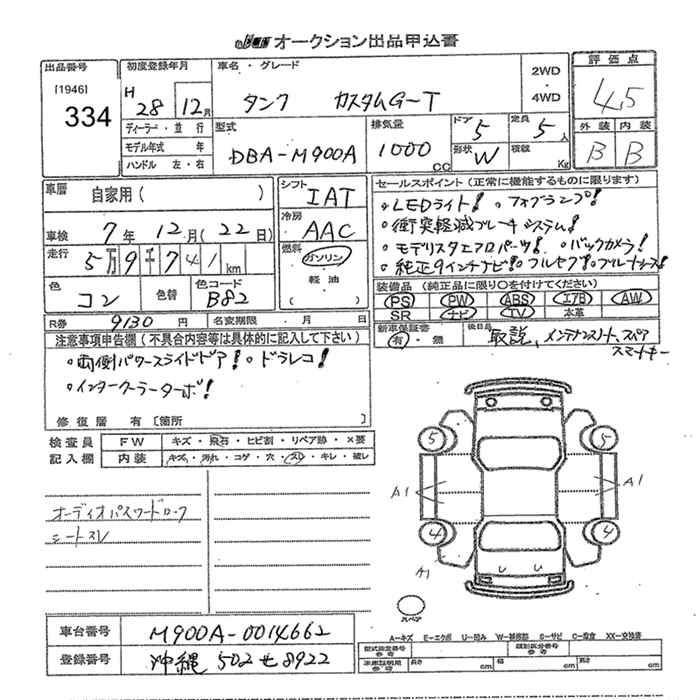 オークション出品申込書
出品番号
[1946]
334
初度登録年月
H 28 12月
ディーラー・並 行
モデル年式 年
ハンドル 左・右
車名・グレード
タンク カスタムG-T
2WD
・
4WD
型式
DBA-M900A
排気量
1000 CC
ドア
5
定員
5人
形状
W
積載
Kg
評価点
4.5
外装 内装
B B
車歴 自家用( )
車検 7年 12月(22日)
走行 5万9千741km
色
コン
色替
色コード
B82
R券 9130円 名変期限 ・ 月 ・ 日
シフト
IAT
冷房
AAC
燃料
ガソリン
軽油
( )
セールスポイント(正常に機能するものに限ります)
・LEDライト! ・フォグランプ!
・衝突軽減ブレーキシステム!
・モデリスタエアロパーツ! ・バックカメラ!
・純正9インチナビ!・フルセグ!・ブルートゥース!
装備品 (純正品に限り○を付けてください)
PS PW ABS エアB AW
SR ナビ TV 本革
新車保証書
有・無
後日品
取説、メンテナンスノート、スペア
スマートキー
注意事項申告欄(不具合内容等は具体的に記入して下さい)
・両側パワースライドドア! ・ドラレコ!
・インタークーラーターボ!
修復歴 有[箇所 ]
検査員
記入欄
FW キズ・飛石・ヒビ割・リペア跡・×要
内装 キズ・汚れ・コゲ・穴・スレ・キレ・破レ
オーディオパスワードロック
シートスレ
5 5
A1 A1
4 4
A1 U U
スペア
車台番号 M900A-0014662
登録番号 沖縄 502 せ 8922
A-キズ E-エクボ U-凹み W-補修跡 S-サビ C-腐食 XX-交換済
型式指定番号
参考
類別区分番号
参考
車庫証明用
参考
長さ cm 幅 cm 高さ cm